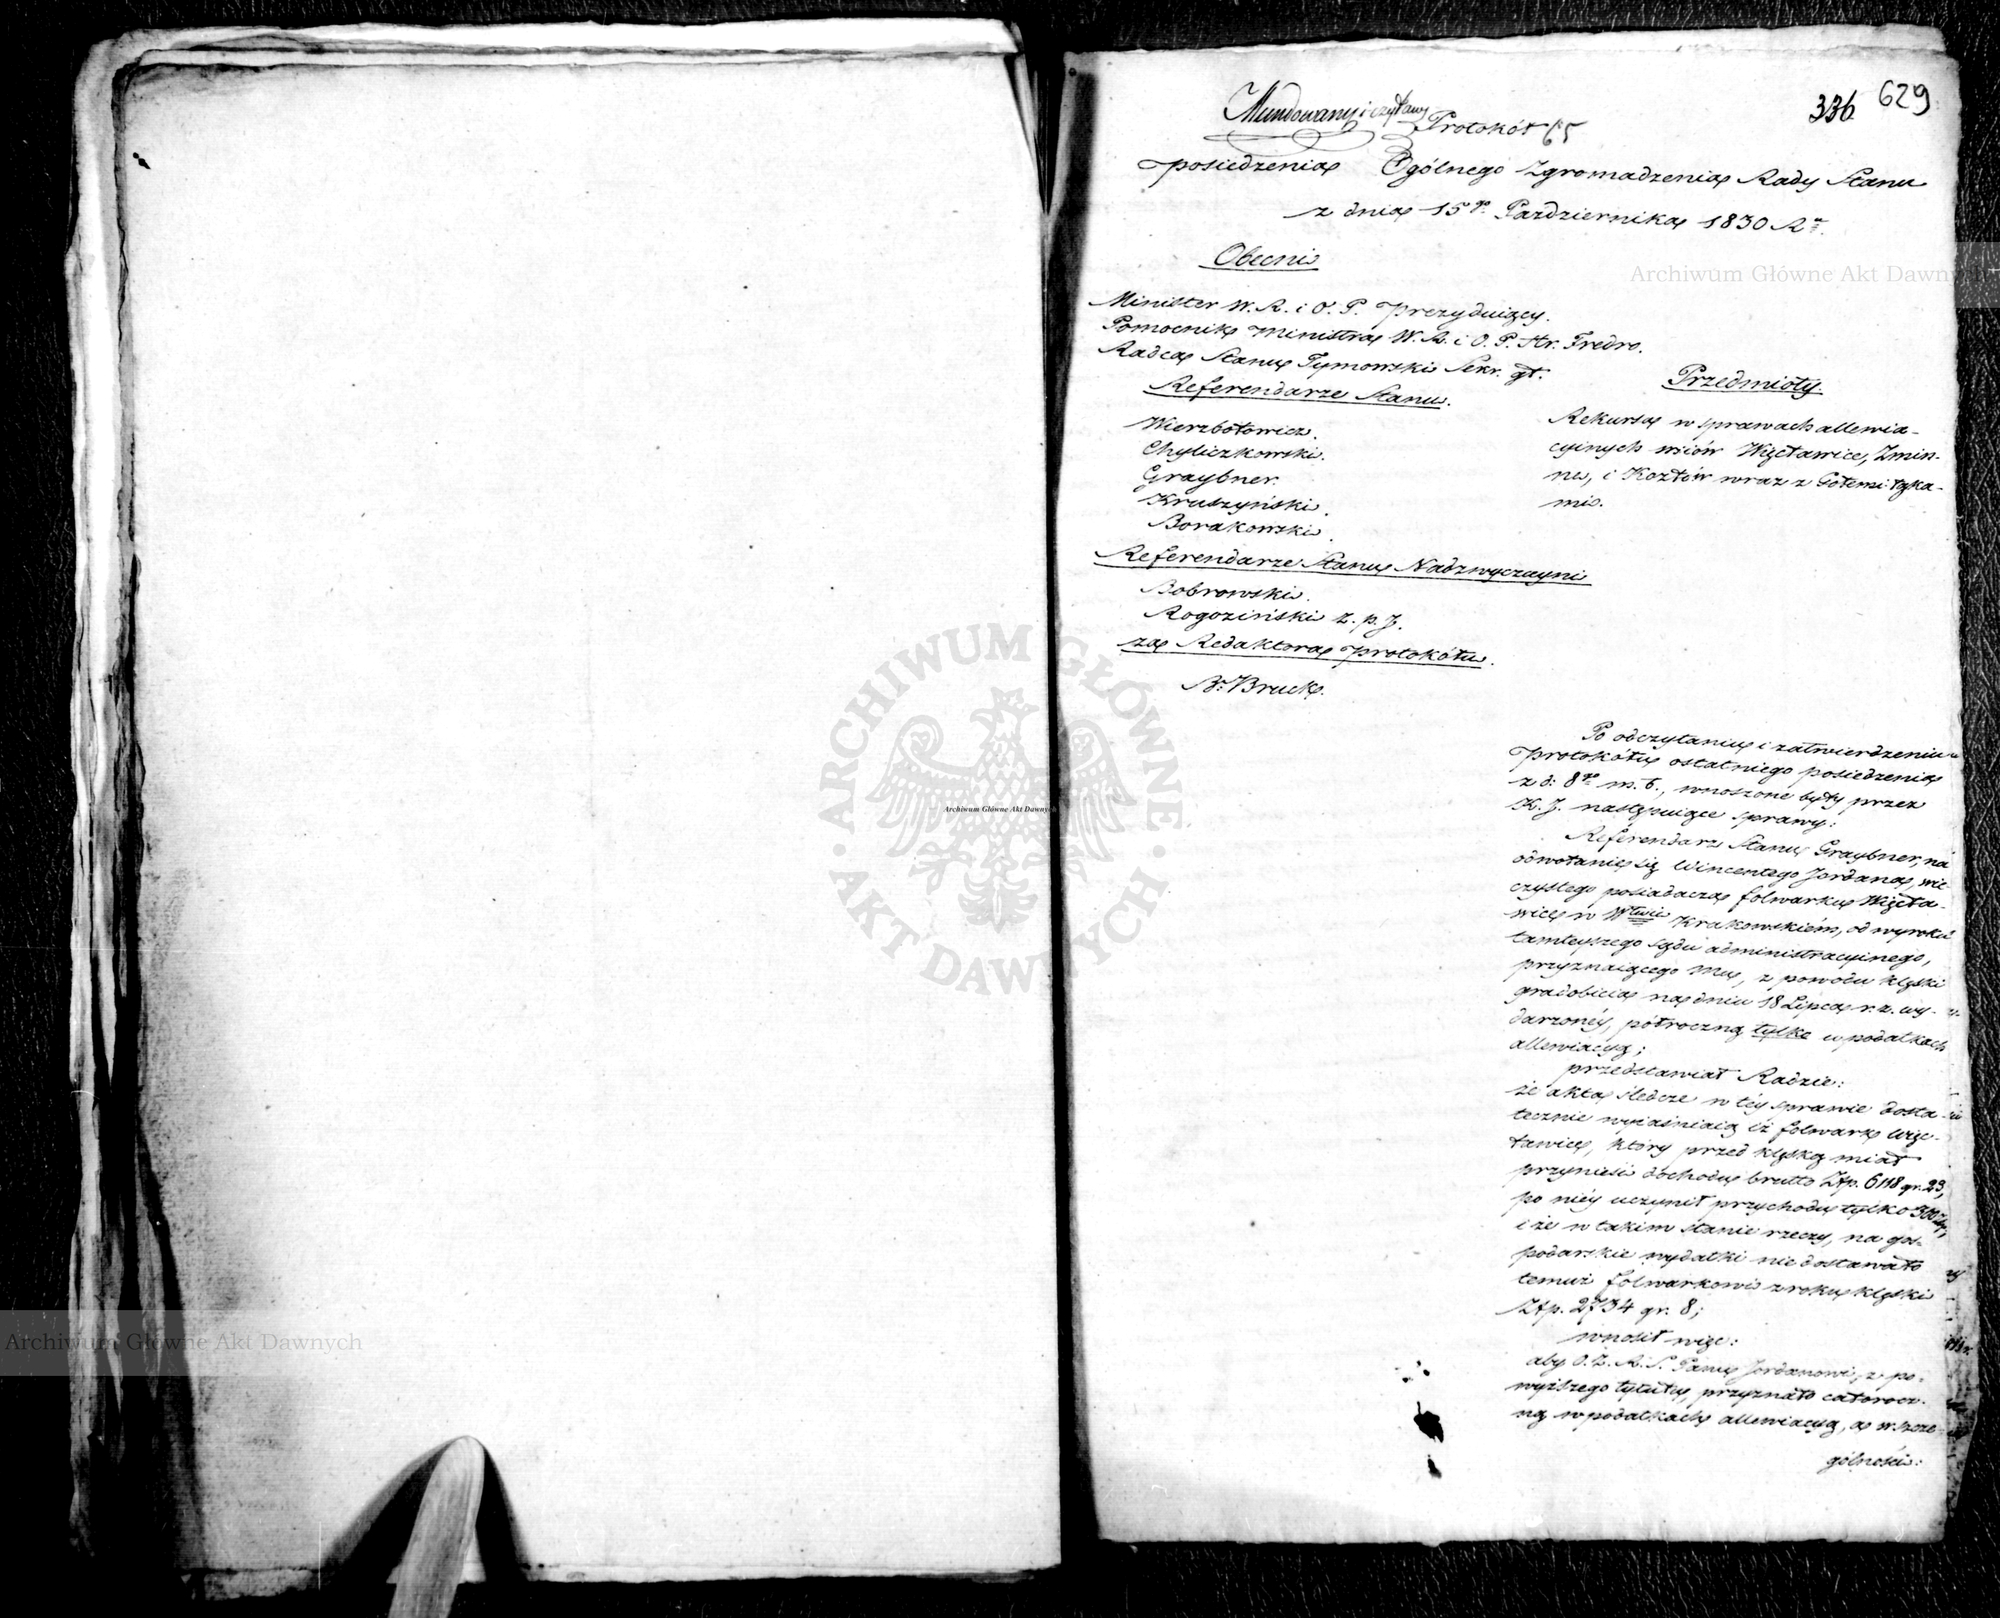 336 629
Mundowany i czytany
Protokół 65
posiedzenia Ogólnego Zgromadzenia Rady Stanu
z dnia 15go Pazdziernika 1830 R.
Obecni
Minister W. R. i O. P. Prezyduiący.
Pomocnik Ministra W. R. i O. P. Hr. Fredro.
Radca Stanu Tymowski Sekr. gł.
Referendarze Stanu.
Wierzbołowicz.
Chyliczkowski.
Graybner.
Kruszyński.
Borakowski.
Referendarze Stanu Nadzwyczayni
Bobrowski.
Rogoziński z. p. J.
za Redaktora Protokółu.
Br. Bruck.
Przedmioty.
Rekursa w sprawach allewia-
cyinych wsiów Więcławice, Zmin-
ne, i Kozłów wraz z Gołemi łąka-
mi.
Po odczytaniu i zatwierdzeniu
Protokółu ostatniego posiedzenia
z d: 8go m. b., wnoszone były przez
K. J. następuiące sprawy:
Referendarz Stanu Graybner, na
odwołanie się Wincentego Jordana, wie-
czystego posiadacza folwarku Więcła-
wice w Wtwie Krakowskiém, od wyroku
tamteyszego sądu administracyinego,
przyznaiącego mu, z powodu klęski
gradobicia na dniu 18 Lipca r. z. wy-
darzonéy, półroczną tylko w podatkach
allewiacyą;
przedstawiał Radzie:
że akta śledcze w téy sprawie dosta-
tecznie wyiaśniaią iż folwark Więc-
ławice, który przed klęską miał
przynieść dochodu brutto Złp. 6118 gr. 23,
po niéy uczynił przychodu tylko 300 złp.,
i że w takim stanie rzeczy, na gos-
podarskie wydatki nie dostawało
temuż folwarkowi z roku klęski
Złp. 2734 gr. 8;
wnosił więc:
aby O. Z. R. S. Panu Jordanowi, z po-
wyższego tytułu, przyznało całorocz-
ną w podatkach allewiacyą, a w szcze-
gólności:
Archiwum Główne Akt Dawnych
Archiwum Główne Akt Dawnych
Archiwum Główne Akt Dawnych
ARCHIWUM GŁÓWNE AKT DAWNYCH